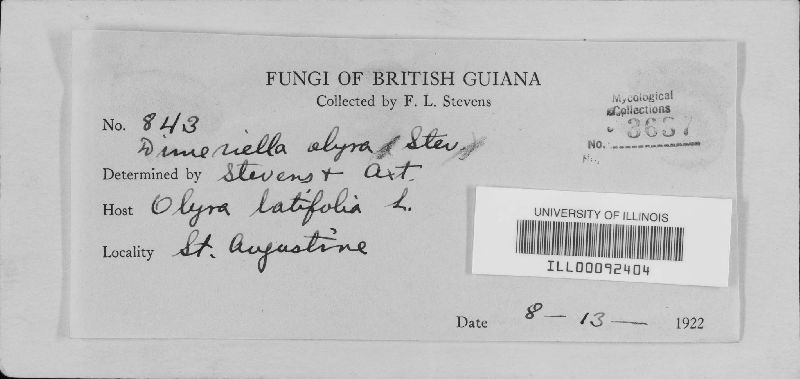 FUNGI OF BRITISH GUIANA
Collected by F. L. Stevens
Mycological
Collections
No. 3637
No. 843
Dimeriella olyra (Stev.)
Determined by Stevens +
Host Olyra latifolia L.
Locality St. Augustine
UNIVERSITY OF ILLINOIS
ILL00092404
Date 8 - 13 - 1922